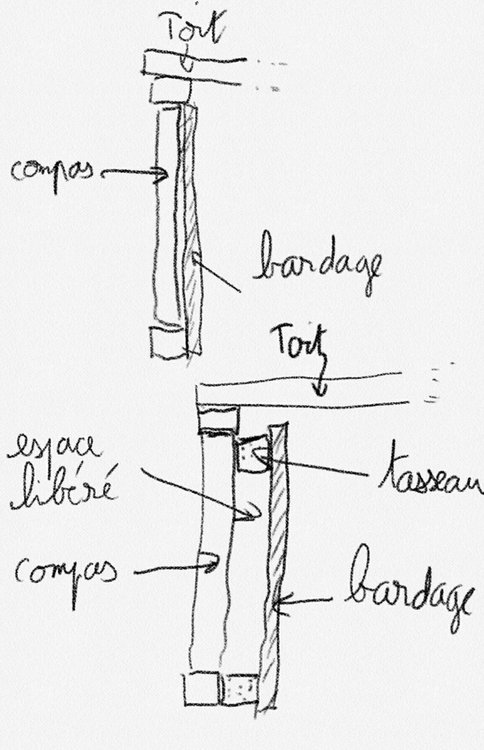 Toit
compas
bardage
Toit
espace
libéré
tasseau
compas
bardage